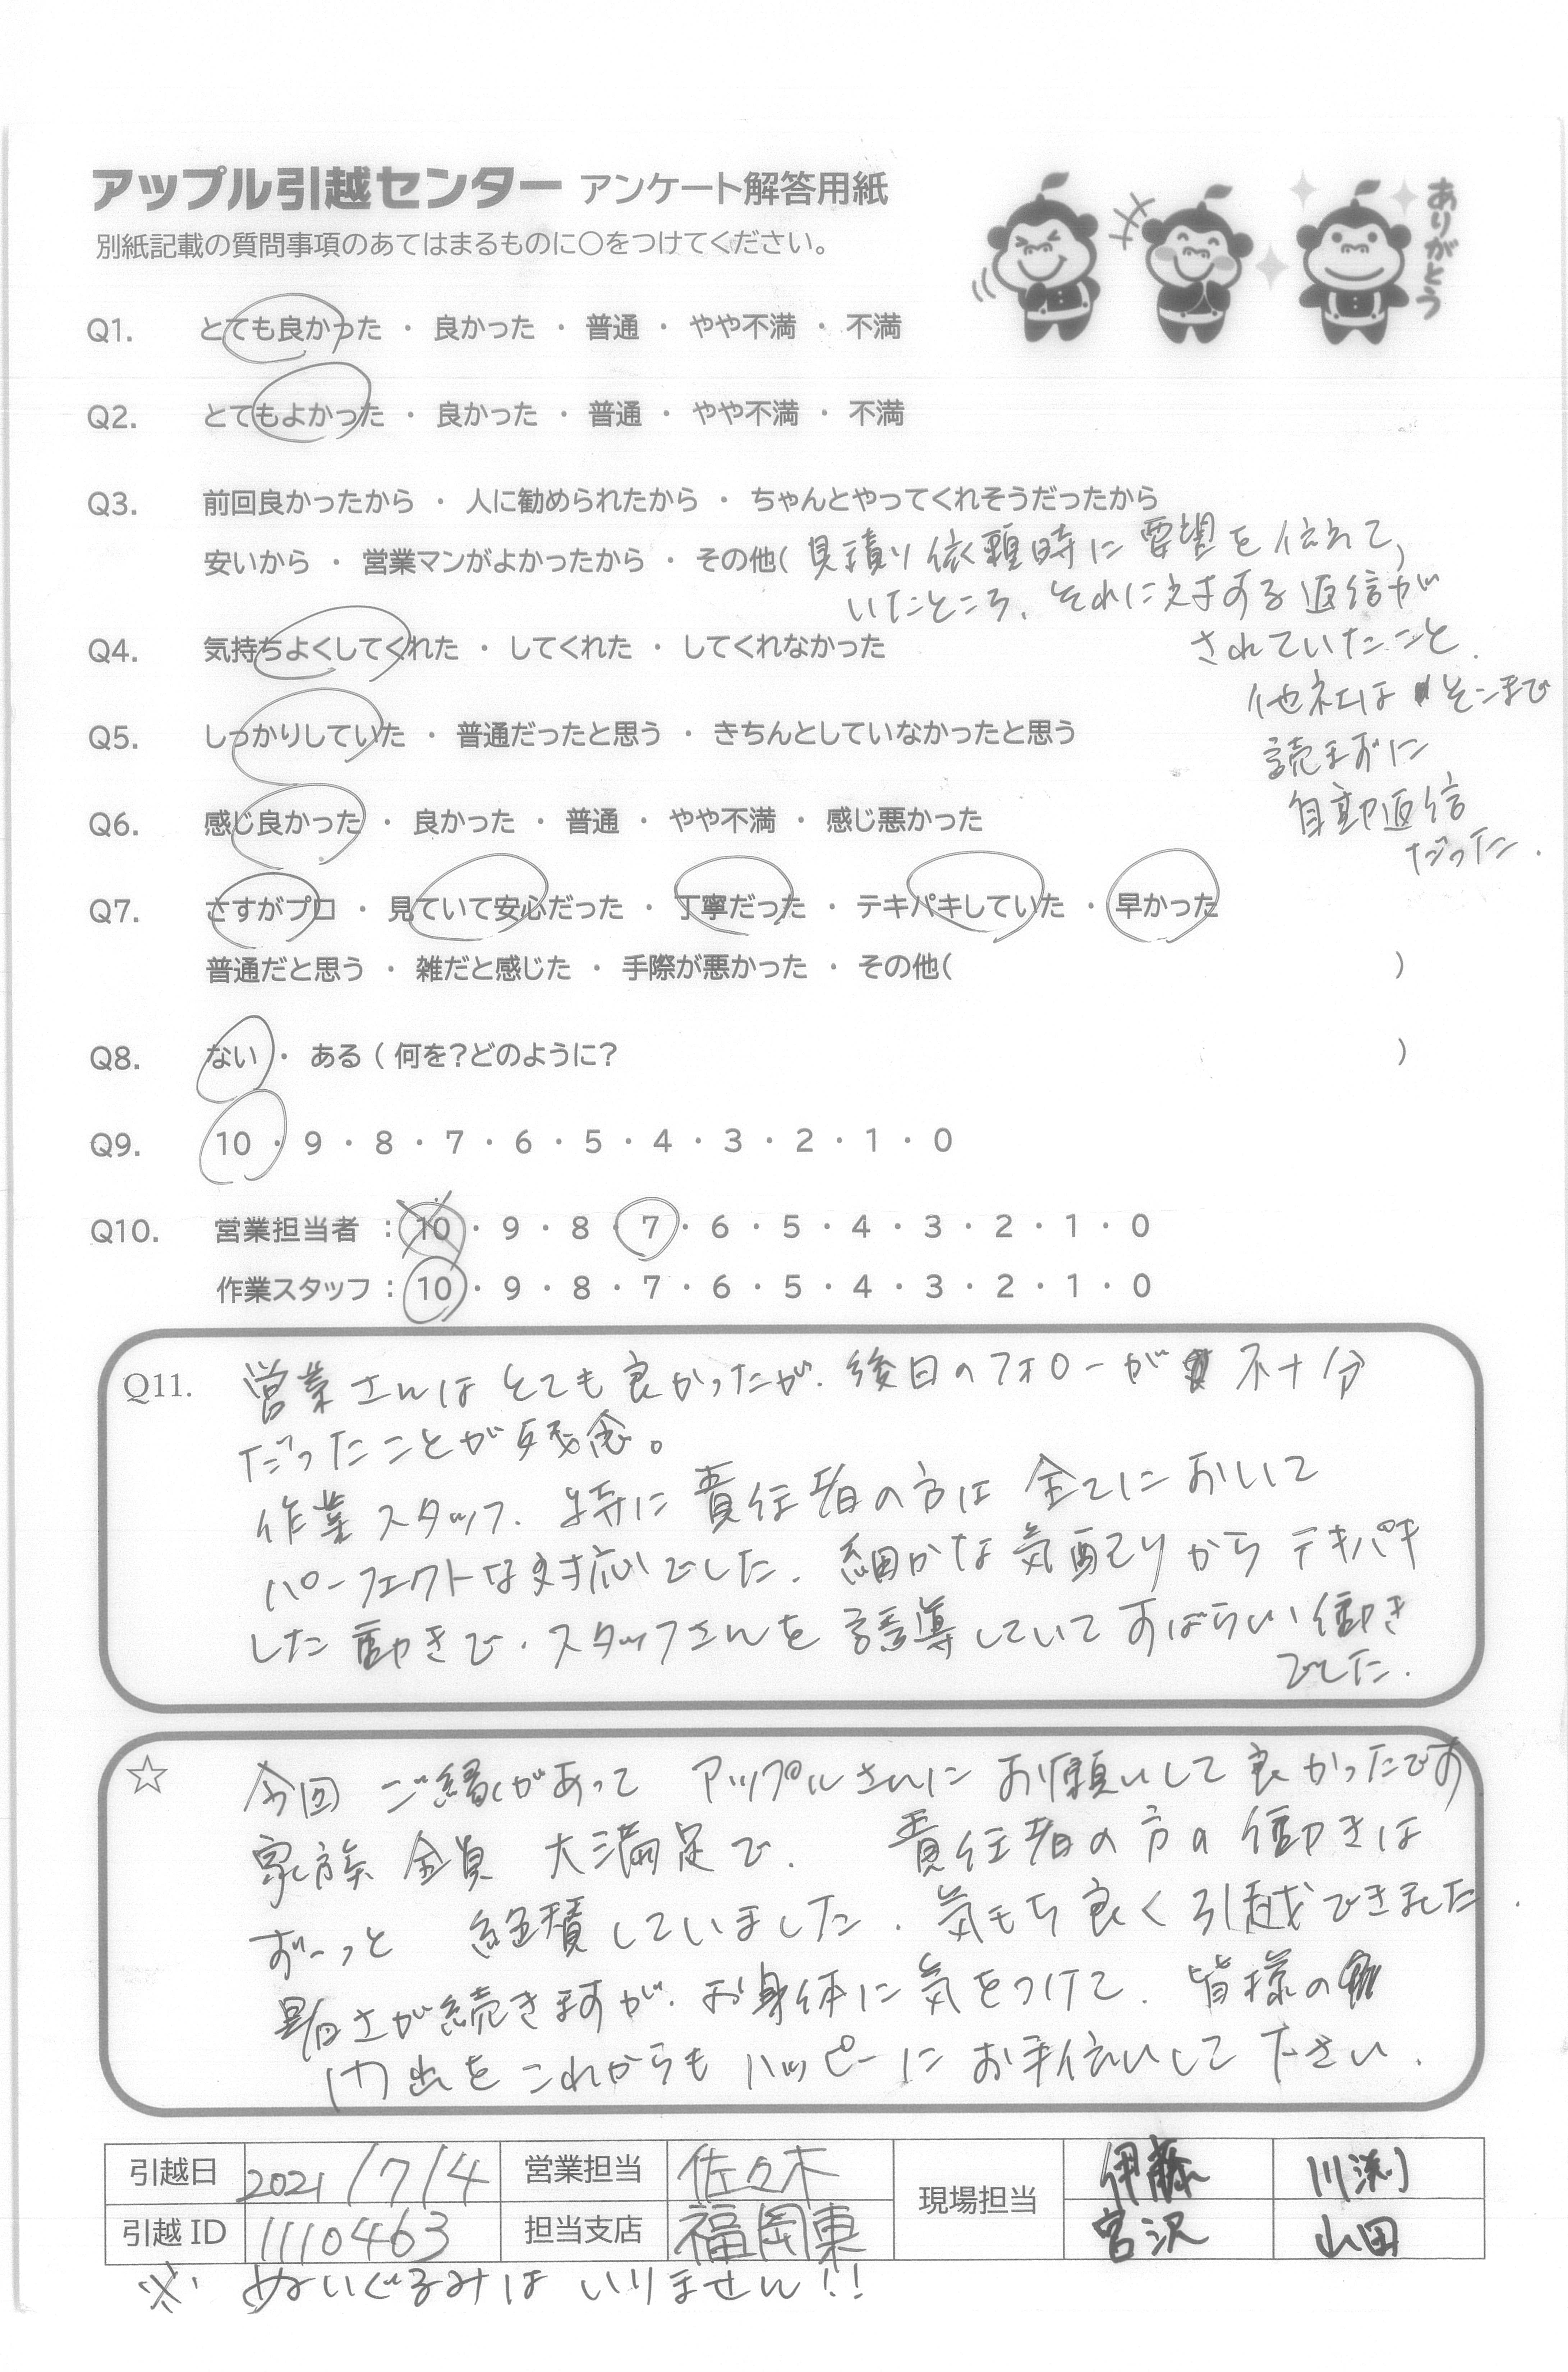 アップル引越センター アンケート解答用紙
別紙記載の質問事項のあてはまるものに○をつけてください。
ありがとう
Q1. とても良かった ・ 良かった ・ 普通 ・ やや不満 ・ 不満
Q2. とてもよかった ・ 良かった ・ 普通 ・ やや不満 ・ 不満
Q3. 前回良かったから ・ 人に勧められたから ・ ちゃんとやってくれそうだったから
安いから ・ 営業マンがよかったから ・ その他( 見積り依頼時に要望を伝えて)
いたところ、それに対する返信が
されていたこと.
他社は そこまで
読まずに
自動返信
だった.
Q4. 気持ちよくしてくれた ・ してくれた ・ してくれなかった
Q5. しっかりしていた ・ 普通だったと思う ・ きちんとしていなかったと思う
Q6. 感じ良かった ・ 良かった ・ 普通 ・ やや不満 ・ 感じ悪かった
Q7. さすがプロ ・ 見ていて安心だった ・ 丁寧だった ・ テキパキしていた ・ 早かった
普通だと思う ・ 雑だと感じた ・ 手際が悪かった ・ その他( )
Q8. ない ・ ある ( 何を?どのように? )
Q9. 10 ・ 9 ・ 8 ・ 7 ・ 6 ・ 5 ・ 4 ・ 3 ・ 2 ・ 1 ・ 0
Q10. 営業担当者 : 10 ・ 9 ・ 8 ・ 7 ・ 6 ・ 5 ・ 4 ・ 3 ・ 2 ・ 1 ・ 0
作業スタッフ : 10 ・ 9 ・ 8 ・ 7 ・ 6 ・ 5 ・ 4 ・ 3 ・ 2 ・ 1 ・ 0
Q11. 営業さんはとても良かったが、後日のフォローが 不十分
だったことが残念。
作業スタッフ、特に責任者の方は全てにおいて
パーフェクトな対応でした. 細かな気配りからテキパキ
した動きで、スタッフさんを誘導していてすばらしい働き
でした.
☆ 今回 ご縁があって アップルさんにお願いして良かったです
家族 全員 大満足で、 責任者の方の働きは
ずーっと 絶賛していました. 気もち良く引越できました.
暑さが続きますが、お身体に気をつけて、皆様の
門出をこれからもハッピーにお手伝いして下さい.
引越日 2021/7/4 営業担当 佐々木 現場担当 伊藤 川渕
引越ID 1110463 担当支店 福岡東 宮沢 山田
※ ぬいぐるみは いりません!!